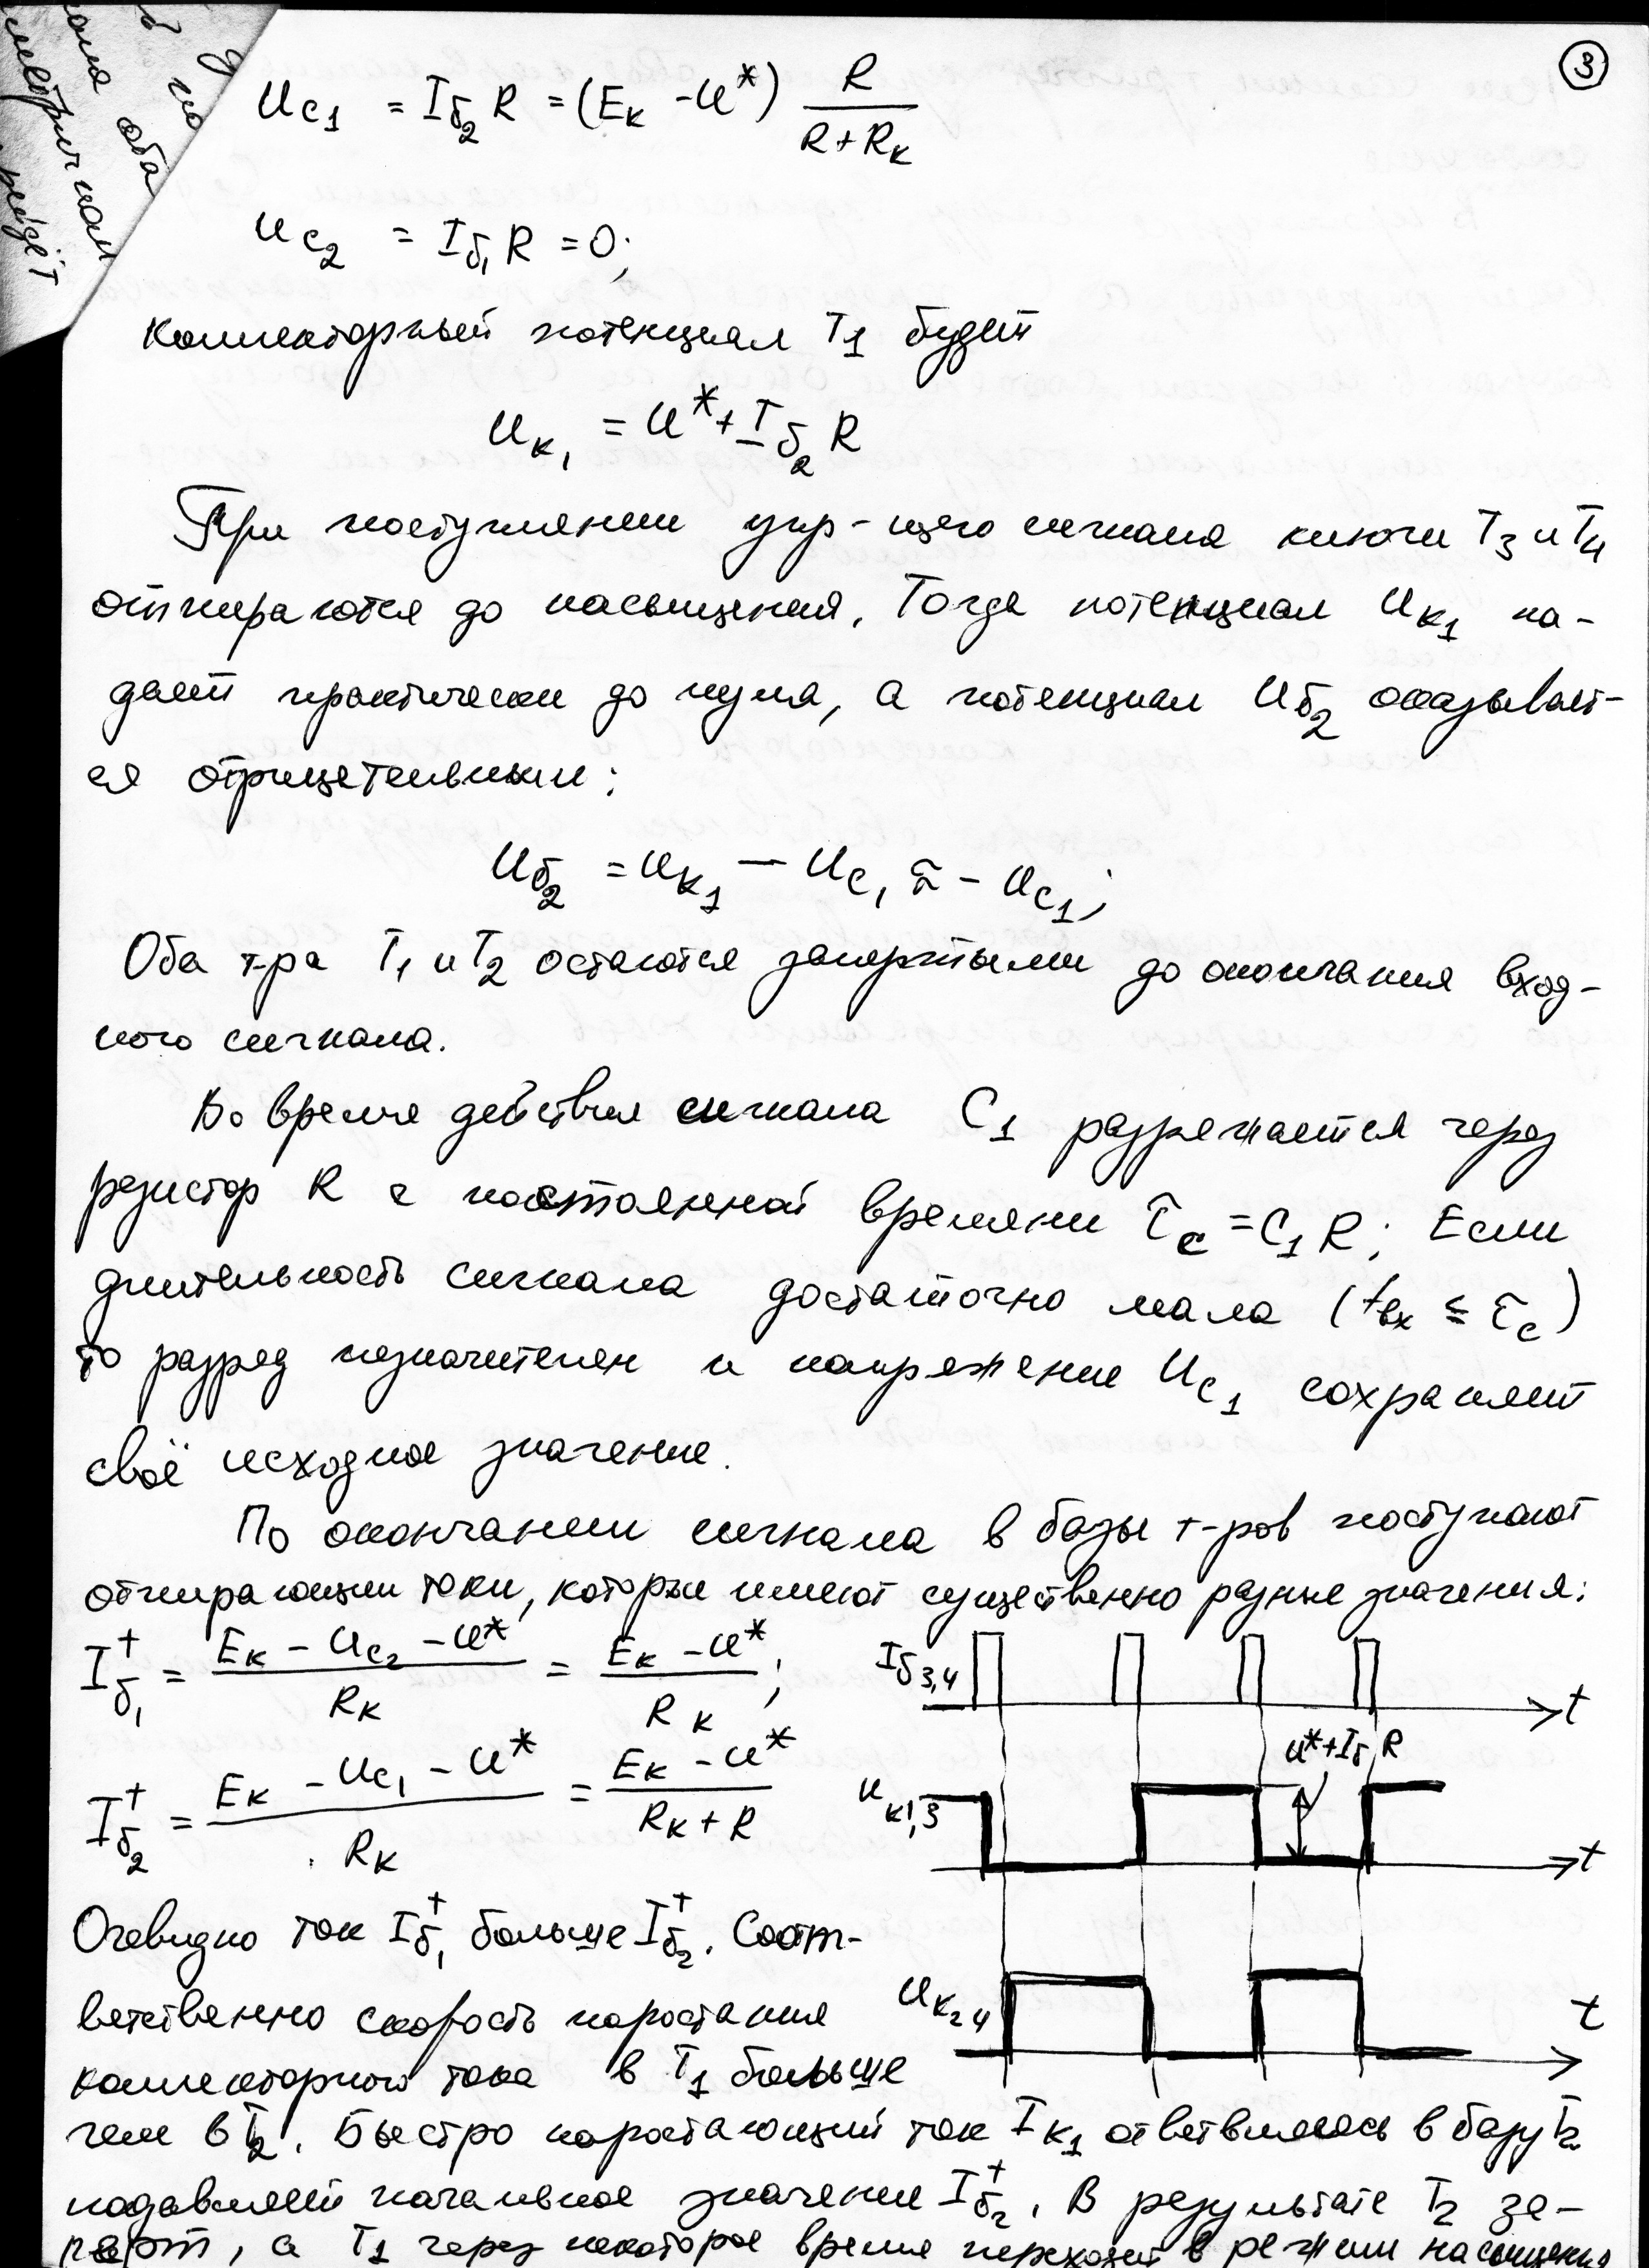 3
U_C1 = I_б2 R = (E_K - U*) R / (R + R_K)
U_C2 = I_б1 R = 0;
Коллекторный потенциал T1 будет
U_K1 = U* + I_б2 R
При поступлении упр-щего сигнала ключи T3 и T4
отпираются до насыщения. Тогда потенциал U_K1 па-
дает практически до нуля, а потенциал U_б2 оказывает-
ся отрицательным:
U_б2 = U_K1 - U_C1 ≈ - U_C1;
Оба т-ра T1 и T2 остаются запертыми до окончания вход-
ного сигнала.
Во время действия сигнала C1 разряжается через
резистор R с постоянной времени τ_c = C1 R; Если
длительность сигнала достаточно мала (t_вх ≤ τ_c)
то разряд незначителен и напряжение U_C1 сохраняет
своё исходное значение.
По окончании сигнала в базы т-ров поступают
отпирающии токи, которые имеют существенно разные значения:
I_б1^+ = (E_K - U_C2 - U*) / R_K = (E_K - U*) / R_K;
I_б2^+ = (E_K - U_C1 - U*) / R_K = (E_K - U*) / (R_K + R)
I_б3,4
t
U* + I_б R
U_K1,3
t
U_K2 4
t
Очевидно ток I_б1^+ больше I_б2^+. Соот-
ветственно скорость нарастания
коллекторного тока в T1 больше
чем в T2. Быстро нарастающий ток I_K1 ответвляясь в базу T2
подавляет начальное значение I_б2^+. В результате T2 за-
перт, а T1 через некоторое время переходит в режим насыщения